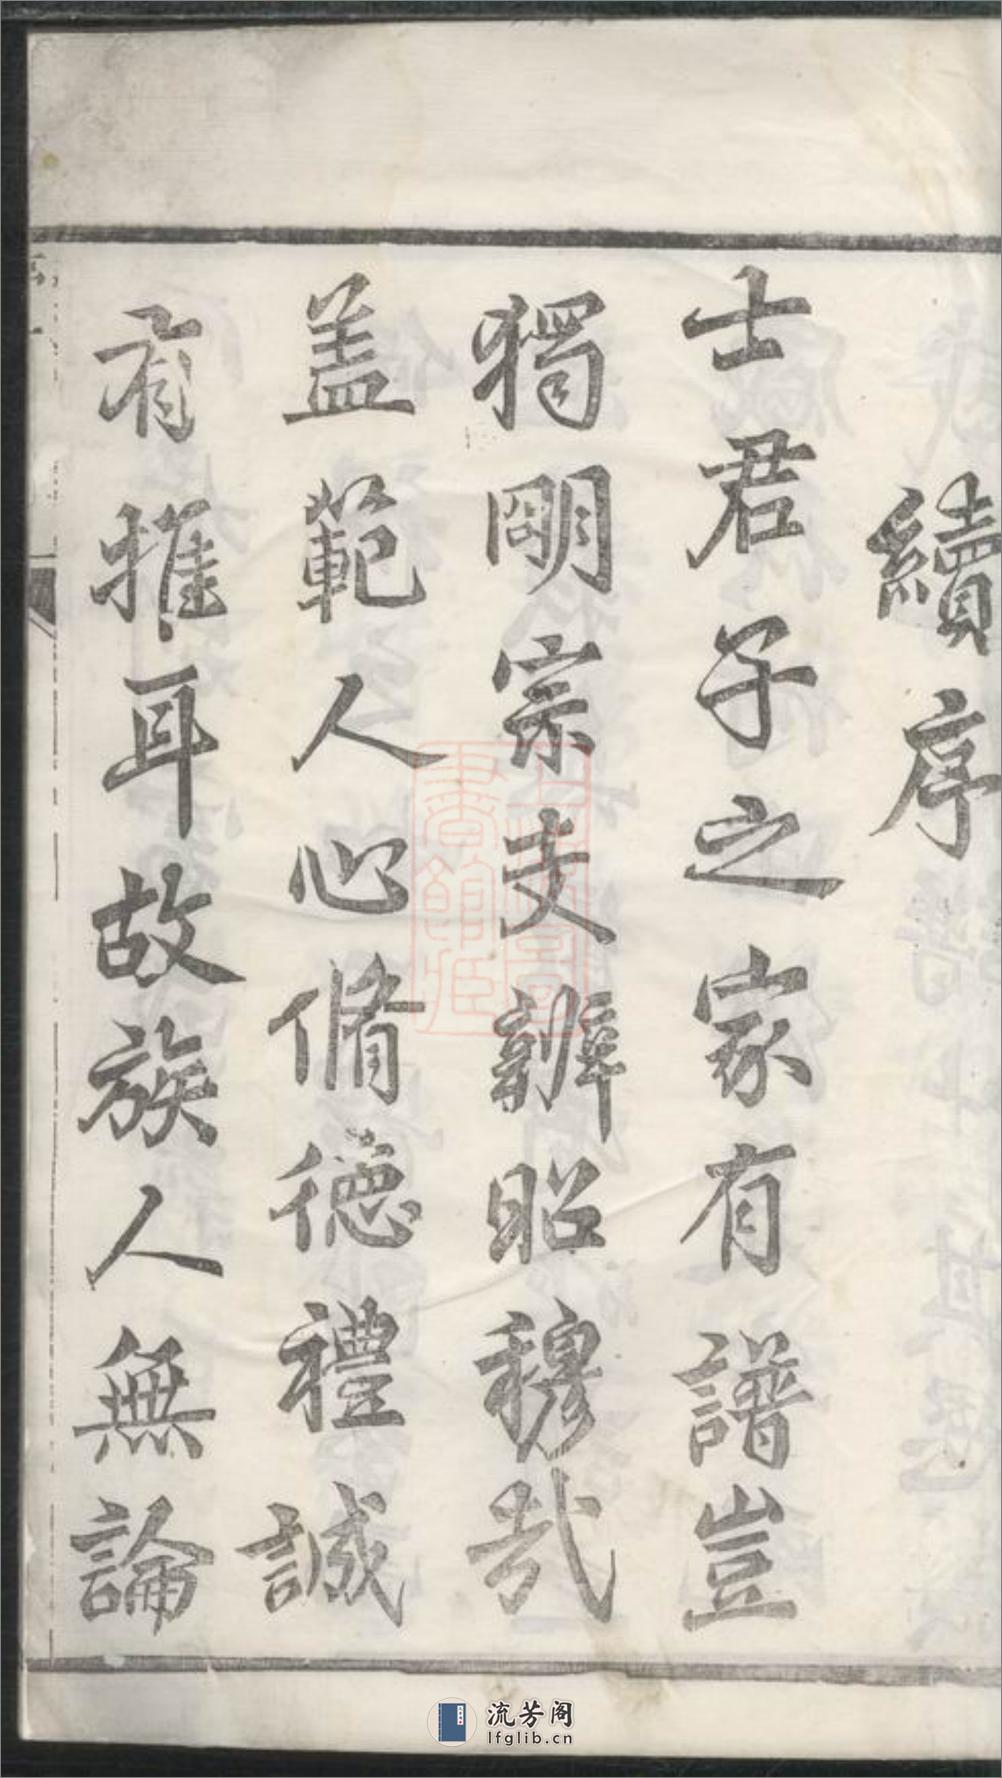 續序
士君子之家有譜豈
獨明宗支辨昭穆哉
盖範人心脩德禮誠
有攡耳故族人無論
流芳阁
lfglib.cn